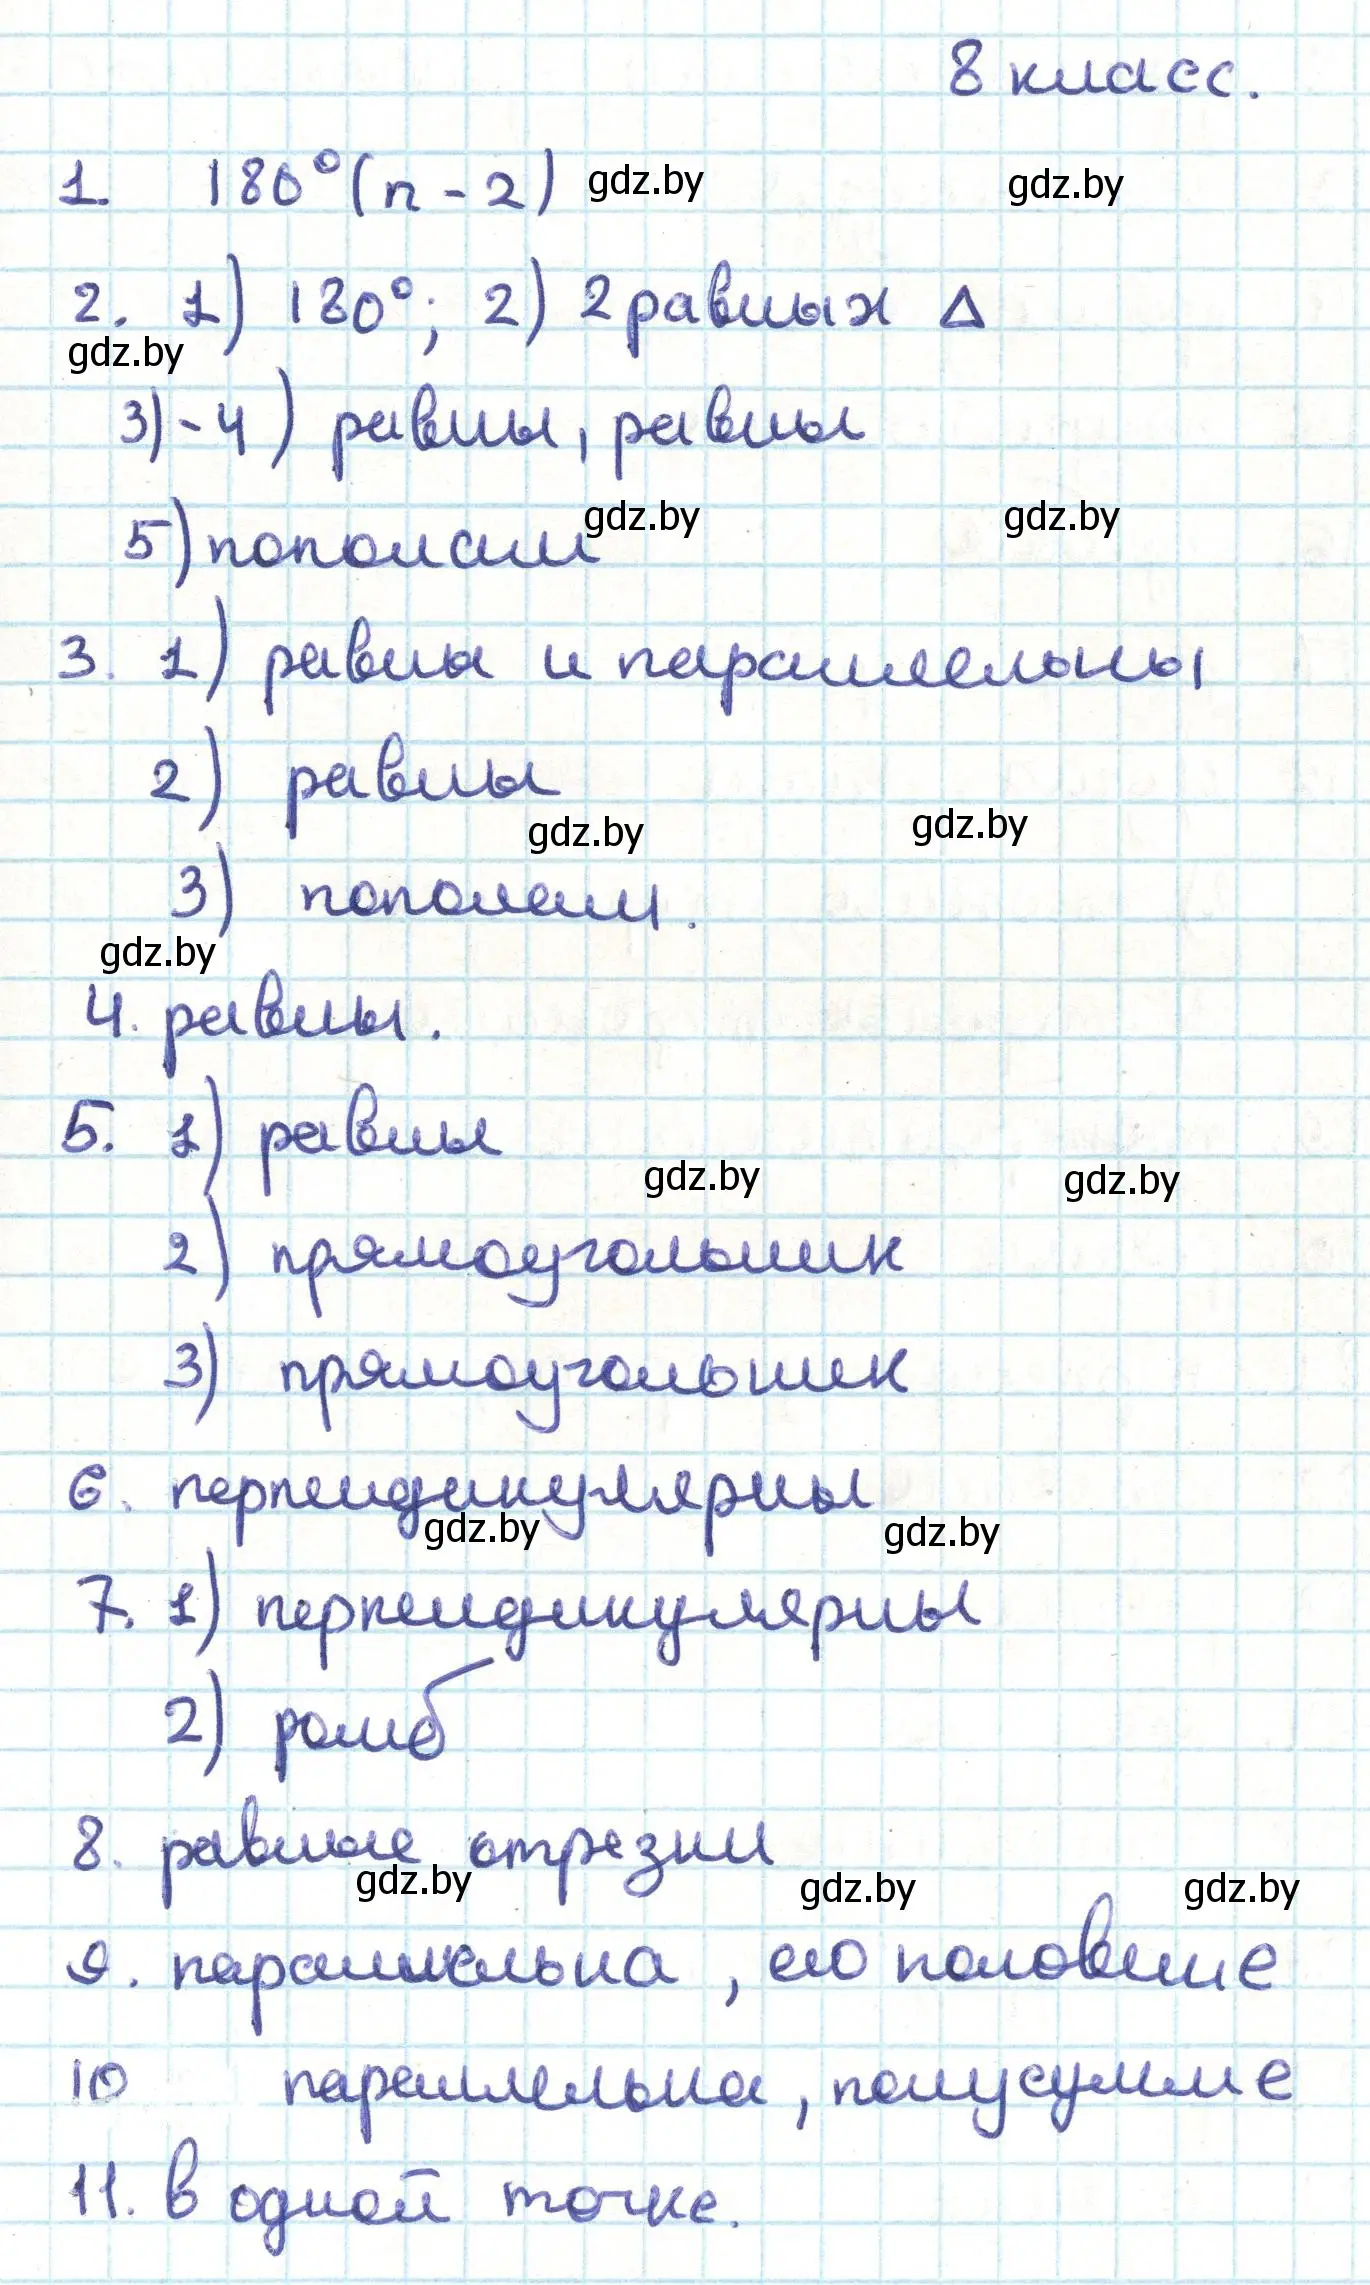 8 класс.
1. 180°(n-2) gdz.by gdz.by
2. 1) 180°; 2) 2 равных Δ
gdz.by
3)-4) равны, равны
5) пополам gdz.by gdz.by
3. 1) равны и параллельны
2) равны
gdz.by gdz.by
3) пополам.
gdz.by
4. равны.
5. 1) равны
gdz.by gdz.by
2) прямоугольник
3) прямоугольник
6. перпендикулярны
gdz.by gdz.by
7. 1) перпендикулярны
2) ромб
8. равные отрезки
gdz.by gdz.by gdz.by
9. параллельна, его половине
10 параллельна, полусумме
11. в одной точке.